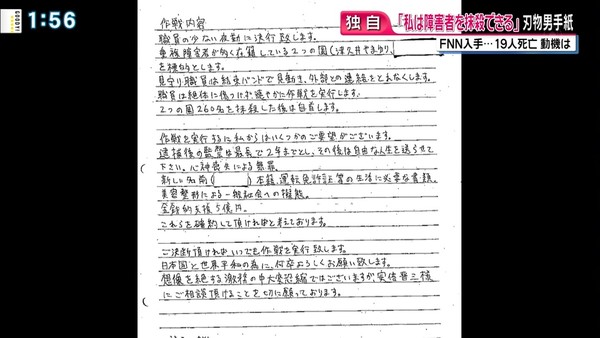 1:56
独自
「私は障害者を抹殺できる」刃物男手紙
FNN入手…19人死亡 動機は
作戦内容
職員の少ない夜勤に決行致します。
重複障害者が多く在籍している2つの園(津久井やまゆり、
を標的とします。
見守り職員は結束バンドで身動き、外部との連絡をとれなくします。
職員は絶体に傷つけず速やかに作戦を実行します。
2つの園260名を抹殺した後は自首します。
作戦を実行するに私からはいくつかのご要望がございます。
逮捕後の監禁は最長で2年までとし、その後は自由な人生を送らせて
下さい。心神喪失による無罪。
新しい名前( )本籍、運転免許証等の生活に必要な書類。
美容整形による一般社会への擬態。
金銭的支援5億円。
これらを確約して頂ければと考えております。
ご決断頂ければ、いつでも作戦を実行致します。
日本国と世界平和の為に、何卒よろしくお願い致します。
想像を絶する激務の中大変恐縮ではございますが、安倍晋三様
にご相談頂けることを切に願っております。